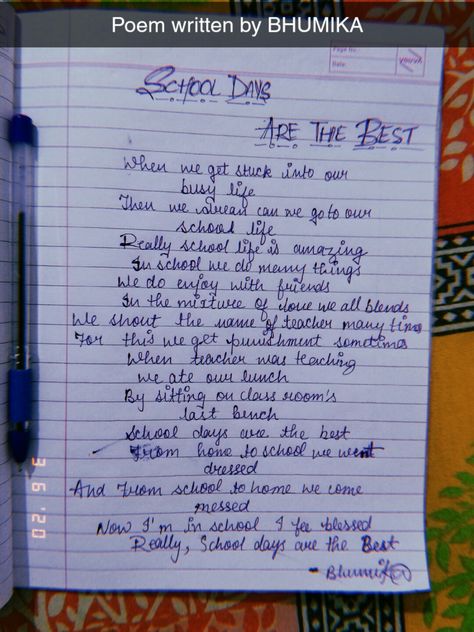 Poem written by BHUMIKA
Page No.
Date:
youva
School Days
Are The Best
When we get stuck into our
busy life
Then we dream can we go to our
school life
Really school life is amazing
In school we do meny things
We do enjoy with friends
In the mixture of love we all blends
We shout the name of teacher many time
For this we get punishment sometimes
When teacher was teaching
we ate our lunch
By sitting on class room's
last bench
School days are the best
From home to school we went
dressed
And From school to home we come
messed
Now I'm in school I fee blessed
Really, School days are the Best
- Bhumika